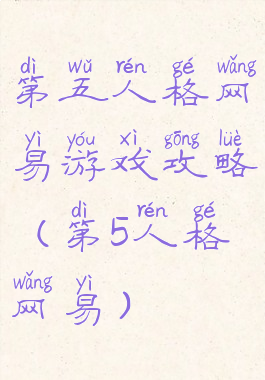 dì wǔ rén gé wǎng
第五人格网
yì yóu xì gōng lüè
易游戏攻略
dì rén gé
(第5人格
wǎng yì
网易)